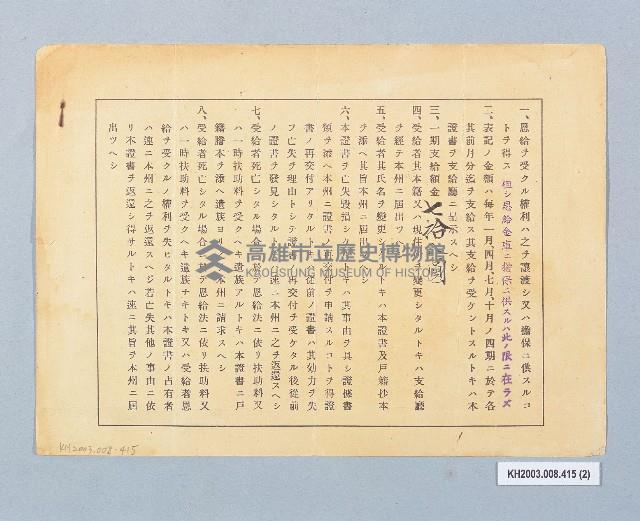 一、恩給ヲ受クル權利ハ之ヲ讓渡シ又ハ擔保ニ供スルコ
トヲ得ス 但シ恩給金庫ニ擔保ニ供スルハ此ノ限ニ在ラズ
二、表記ノ金額ハ每年一月、四月、七月、十月ノ四期ニ於テ各
其前月分迄ヲ支給ス其支給ヲ受ケントスルトキハ本
證書ヲ支給廳ニ呈示スヘシ
三、一期支給額金七拾圓
四、受給者其本籍又ハ現住所ヲ變更シタルトキハ支給廳
ヲ經テ本州ニ屆出ツヘシ
五、受給者其氏名ヲ變更シタルトキハ本證書及戶籍抄本
ヲ添ヘ其旨本州ニ屆出ツヘシ
六、本證書ヲ亡失毀損シタルトキハ其事由ヲ具シ證憑書
類ヲ添ヘ本州ニ證書ノ再交付ヲ申請スルコトヲ得證
書ノ再交付アリタルトキハ從前ノ證書ハ其効力ヲ失
フ亡失ヲ理由トシテ證書ノ再交付ヲ受ケタル後從前
ノ證書ヲ發見シタルトキハ速ニ本州ニ之ヲ返還スヘシ
七、受給者死亡シタル場合ニ於テ恩給法ニ依リ扶助料又
ハ一時扶助料ヲ受クヘキ遺族アルトキハ本證書ニ戶
籍謄本ヲ添ヘ遺族ヨリ本州ニ請求スヘシ
八、受給者死亡シタル場合ニ於テ恩給法ニ依リ扶助料又
ハ一時扶助料ヲ受クヘキ遺族ナキトキ又ハ受給者恩
給ヲ受クルノ權利ヲ失ヒタルトキハ本證書ノ占有者
ハ速ニ本州ニ之ヲ返還スヘシ若亡失其他ノ事由ニ依
リ本證書ヲ返還シ得サルトキハ速ニ其旨ヲ本州ニ屆
出ツヘシ
高雄市立歷史博物館
KAOHSIUNG MUSEUM OF HISTORY
KH2003.008.415
KH2003.008.415 (2)